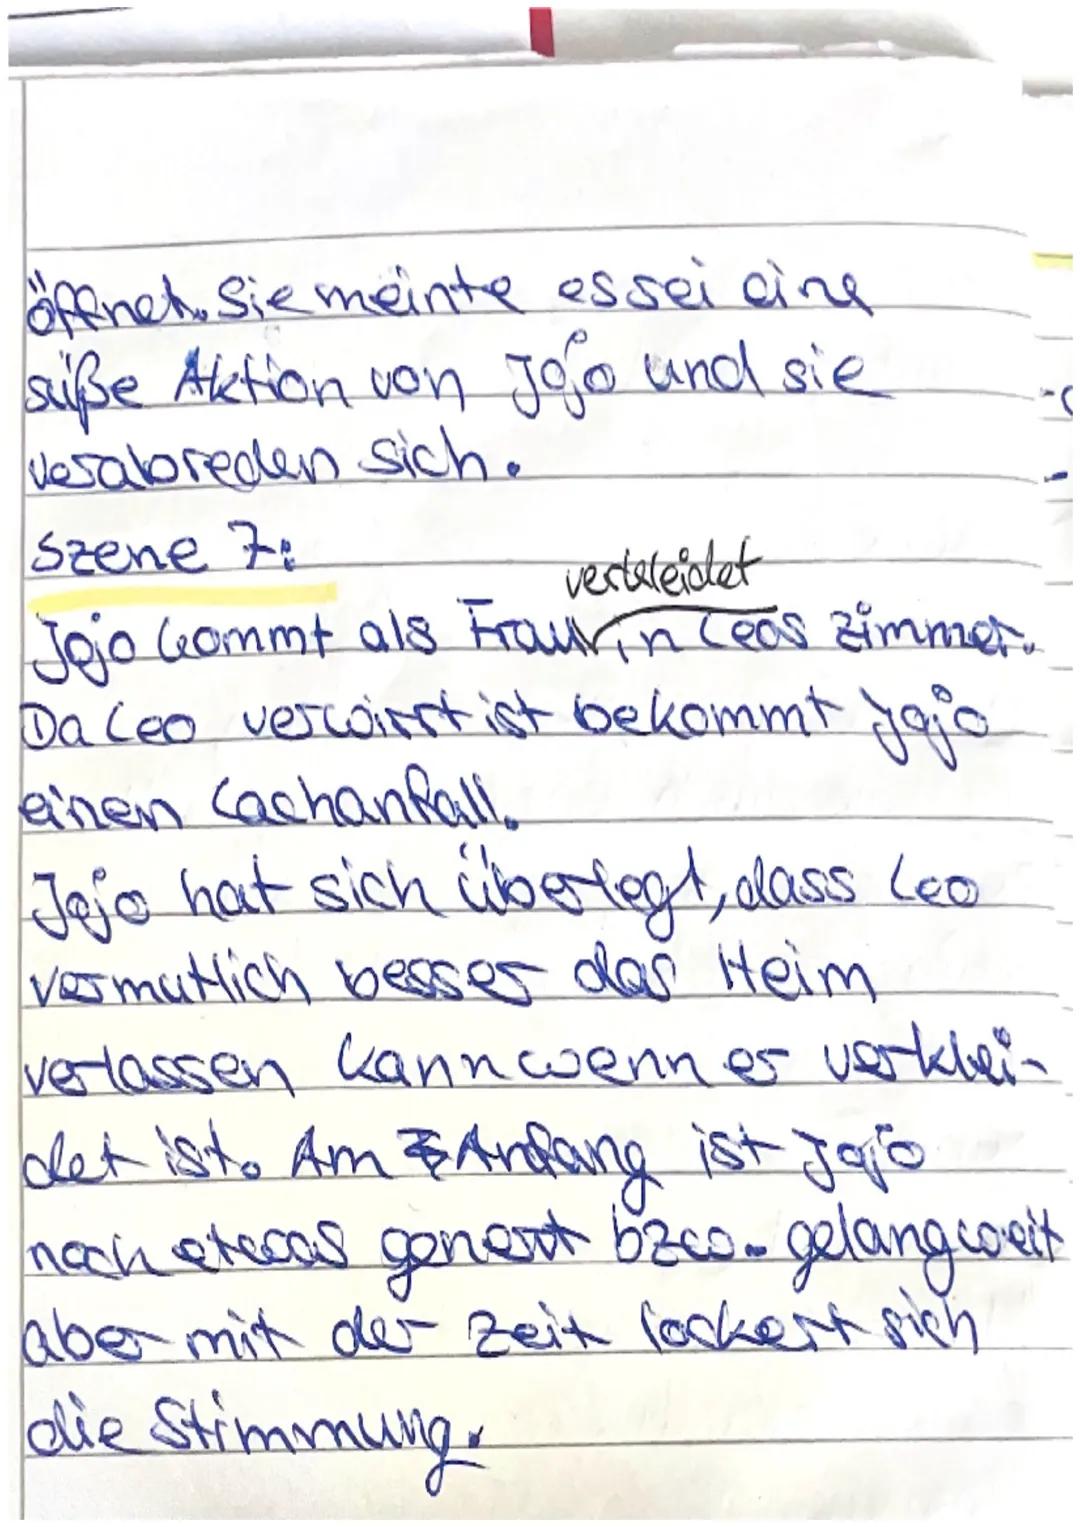 öffnet. Sie meinte es sei eine
süße Aktion von Jojo und sie
verabreden sich.
Szene 7:
verkleidet
Jojo kommt als Frau in Leos Zimmer.
Da Leo verwirrt ist bekommt Jojo
einen Lachanfall.
Jojo hat sich überlegt, dass Leo
vermutlich besser das Heim
verlassen kann wenn er verklei-
det ist. Am Anfang ist Jojo
noch etwas genervt bzw. gelangweit
aber mit der Zeit lockert sich
die Stimmung.